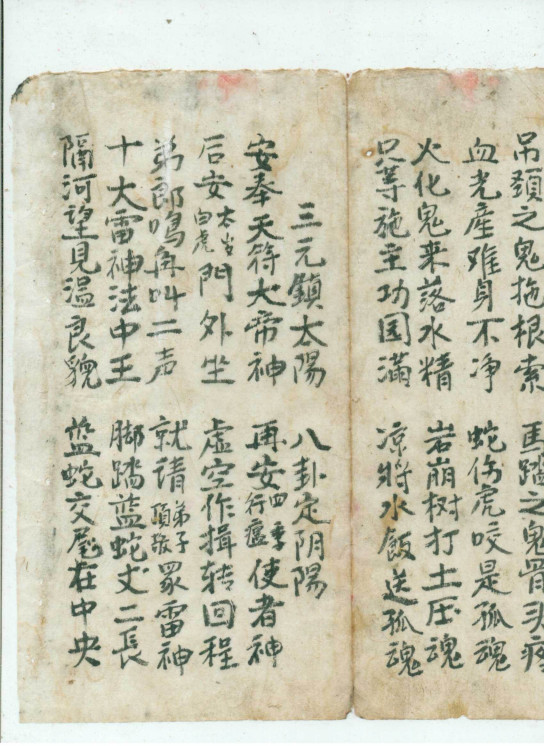 吊頚之鬼拖根索 馬踏之鬼骨头疼
血光產难身不净 蛇伤虎咬是孤魂
火化鬼来落水精 岩崩树打土压魂
只等施主功国滿 凉将水飯送孤魂
三元鎮太陽 八卦定阴陽
安奉天符大帝神 再安四季行瘟使者神
后安太岁白虎門外坐 虚空作揖转回程
弟郎鳴角叫二声 就请弟子頂敬眾雷神
十大雷神法中王 脚踏蓝蛇丈二長
隔河望見温良貌 蓝蛇交在中央